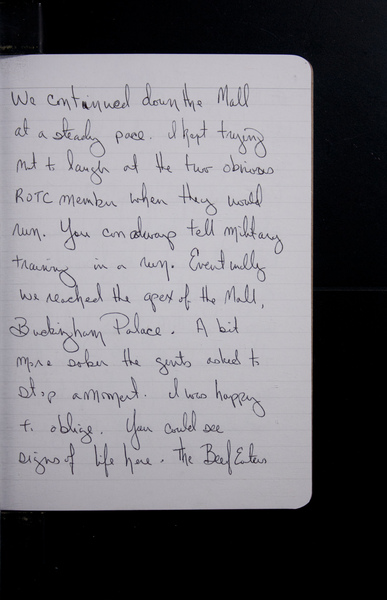 We continued down the Mall
at a steady pace. I kept trying
not to laugh at the two obvious
ROTC member when they would
run. You can always tell military
training in a run. Eventually
we reached the apex of the Mall,
Buckingham Palace. A bit
more sober the gents asked to
stop a moment. I was happy
to oblige. You could see
signs of life here. The BeefEaters